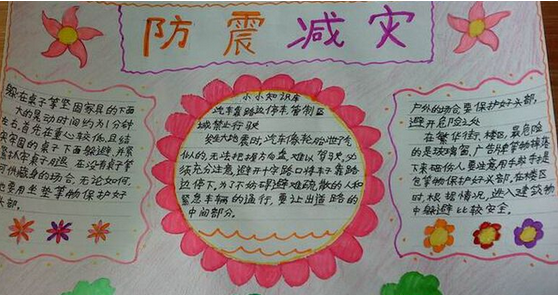 防震减灾
躲在桌子等坚固家具的下面
大的晃动时间约为1分钟
左右,首先在重心较低且结
实牢固的桌子下面躲避,并紧
紧抓牢桌子腿。在没有桌子等
可供藏身的场合,无论如何
也要用坐垫等物保护好
头部。
小小知识库
汽车靠路边停车管制区
域禁止行驶
发生大地震时,汽车像轮胎泄了气
似的,无法把握方向盘,难以驾驶,必
须充分注意,避开十字路口将车子靠路
边停下。为了不妨碍避难疏散的人和
紧急车辆的通行,要让出道路的
中间部分。
户外的场合要保护好头部,
避开危险之处
在繁华街、楼区,最危险
的是玻璃窗、广告牌等物掉落
下来砸伤人。要注意用手或手提
包等物保护好头部。在楼区
时,根据情况,进入建筑物
中躲避比较安全。